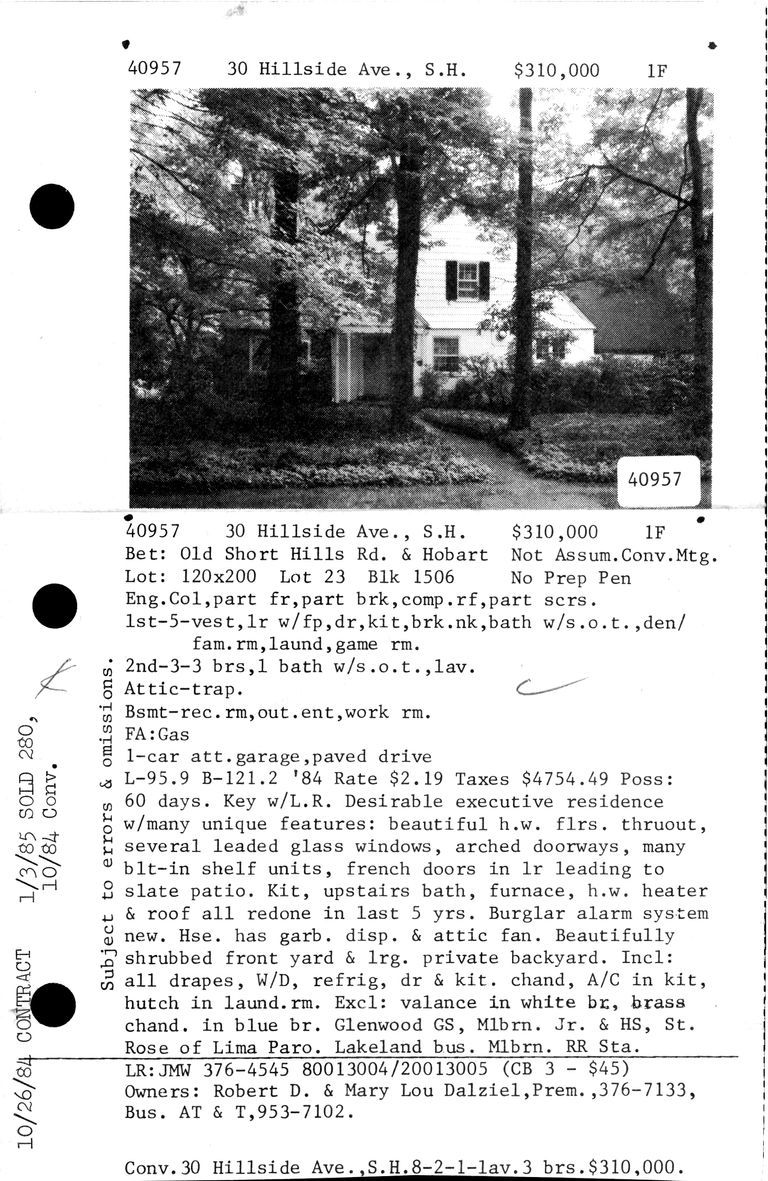 40957 30 Hillside Ave., S.H. $310,000 1F
40957
40957 30 Hillside Ave., S.H. $310,000 1F
Bet: Old Short Hills Rd. & Hobart Not Assum.Conv.Mtg.
Lot: 120x200 Lot 23 Blk 1506 No Prep Pen
Eng.Col,part fr,part brk,comp.rf,part scrs.
1st-5-vest,lr w/fp,dr,kit,brk.nk,bath w/s.o.t.,den/
fam.rm,laund,game rm.
2nd-3-3 brs,1 bath w/s.o.t.,lav.
Attic-trap.
Bsmt-rec.rm,out.ent,work rm.
FA:Gas
1-car att.garage,paved drive
L-95.9 B-121.2 '84 Rate $2.19 Taxes $4754.49 Poss:
60 days. Key w/L.R. Desirable executive residence
w/many unique features: beautiful h.w. flrs. thruout,
several leaded glass windows, arched doorways, many
blt-in shelf units, french doors in lr leading to
slate patio. Kit, upstairs bath, furnace, h.w. heater
& roof all redone in last 5 yrs. Burglar alarm system
new. Hse. has garb. disp. & attic fan. Beautifully
shrubbed front yard & lrg. private backyard. Incl:
all drapes, W/D, refrig, dr & kit. chand, A/C in kit,
hutch in laund.rm. Excl: valance in white br, brass
chand. in blue br. Glenwood GS, Mlbrn. Jr. & HS, St.
Rose of Lima Paro. Lakeland bus. Mlbrn. RR Sta.
LR:JMW 376-4545 80013004/20013005 (CB 3 - $45)
Owners: Robert D. & Mary Lou Dalziel,Prem.,376-7133,
Bus. AT & T,953-7102.
Conv.30 Hillside Ave.,S.H.8-2-1-lav.3 brs.$310,000.
Subject to errors & omissions.
10/26/84 CONTRACT 1/3/85 SOLD 280,
10/84 Conv.